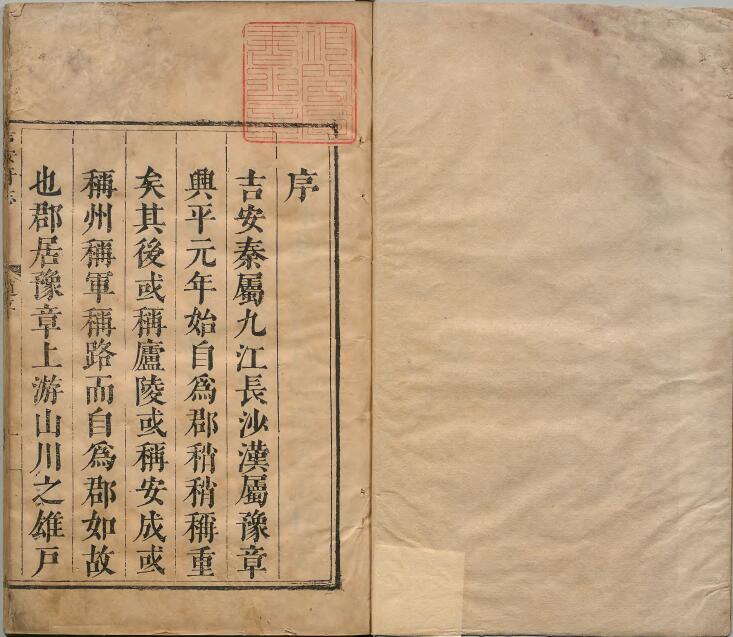 序
吉安秦屬九江長沙漢屬豫章
興平元年始自爲郡稍稍稱重
矣其後或稱廬陵或稱安成或
稱州稱軍稱路而自爲郡如故
也郡居豫章上游山川之雄戸